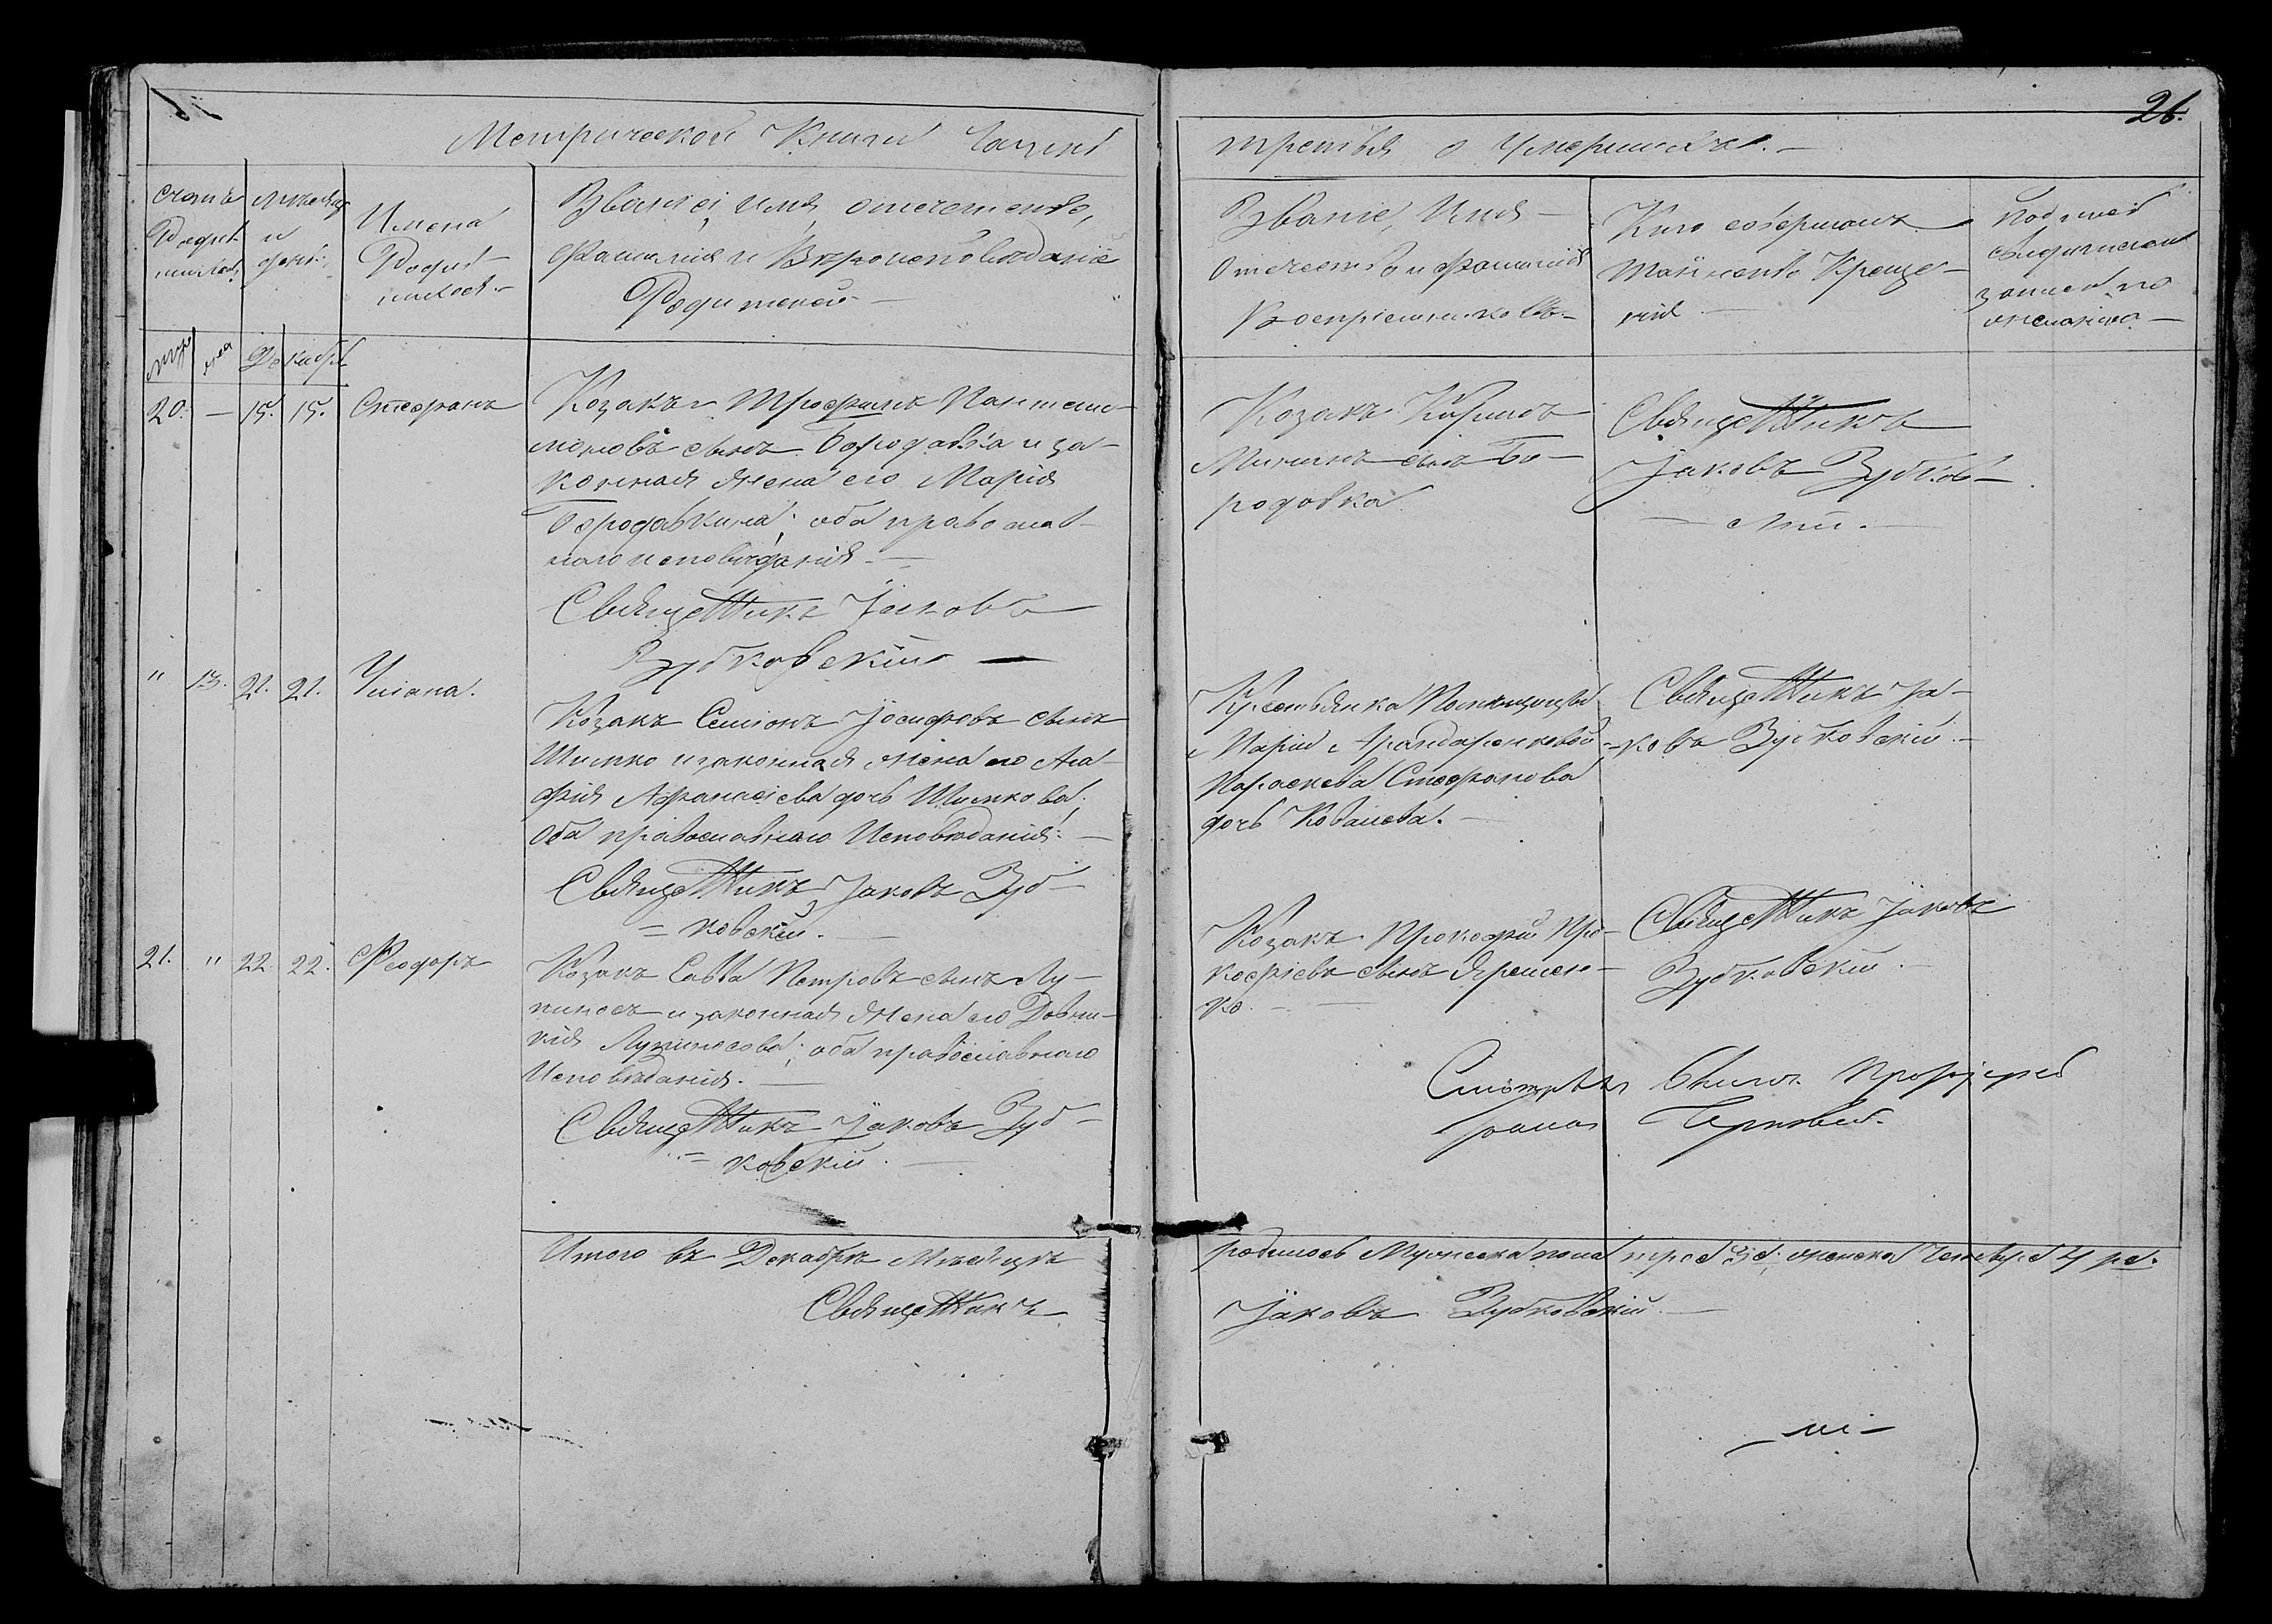 26.
Метрической Книги Части
третья о Умершихъ. —
Счетъ
Родив-
шихся
Мѣсяцъ
и
день.
Имена
Родив-
шихся. —
Званіе, имя, отечество,
фамилія и Вѣроисповѣданіе
Родителей. —
Званіе, Имя —
Отечество и фамилія
Воспріемниковъ. —
Кто совершалъ
Таинство Креще-
нія —
записи по
желанію. —
муж. жен Декабрь
20. — 15. 15. Стефанъ
Козакъ Трофимъ Пантели-
моновъ сынъ Бородавка и за-
конная жена его Марія
Бородавкина; оба православ-
наго исповѣданія. —
Священникъ Іаковъ
Зубковскій —
Козакъ Кирилъ
Мининъ сынъ Бо-
родовка.
Священникъ
Іаковъ Зубков-
— скій. —
" 13. 21. 21. Уліана.
Козакъ Семіонъ Іосифовъ сынъ
Шимко и законная жена его Ага-
фія Афанасіева дочь Шимкова;
оба православнаго Исповѣданія. —
Священникъ Іаковъ Зуб-
= ковскій. —
Крестьянка Помѣщицы
Маріи Арандаренковой
Параскева Стефанова
дочь Ковалева. —
Священникъ Іа-
ковъ Зубковскій. —
21. " 22. 22. Феодоръ
Козакъ Савва Петровъ сынъ Лу-
пиносъ и законная жена его Довни-
кія Лупиносова; оба православнаго
Исповѣданія. —
Священникъ Іаковъ Зуб-
= ковскій. —
Козакъ Прокофій Про-
кофіевъ сынъ Яремен-
ко. —
Священникъ Іаковъ
Зубковскій. —
Итого въ Декабрѣ Мѣсяцѣ
родилось Мужеска пола трое 3е; женска Четверо 4 ро.
Священникъ
Іаковъ Зубковскій. —